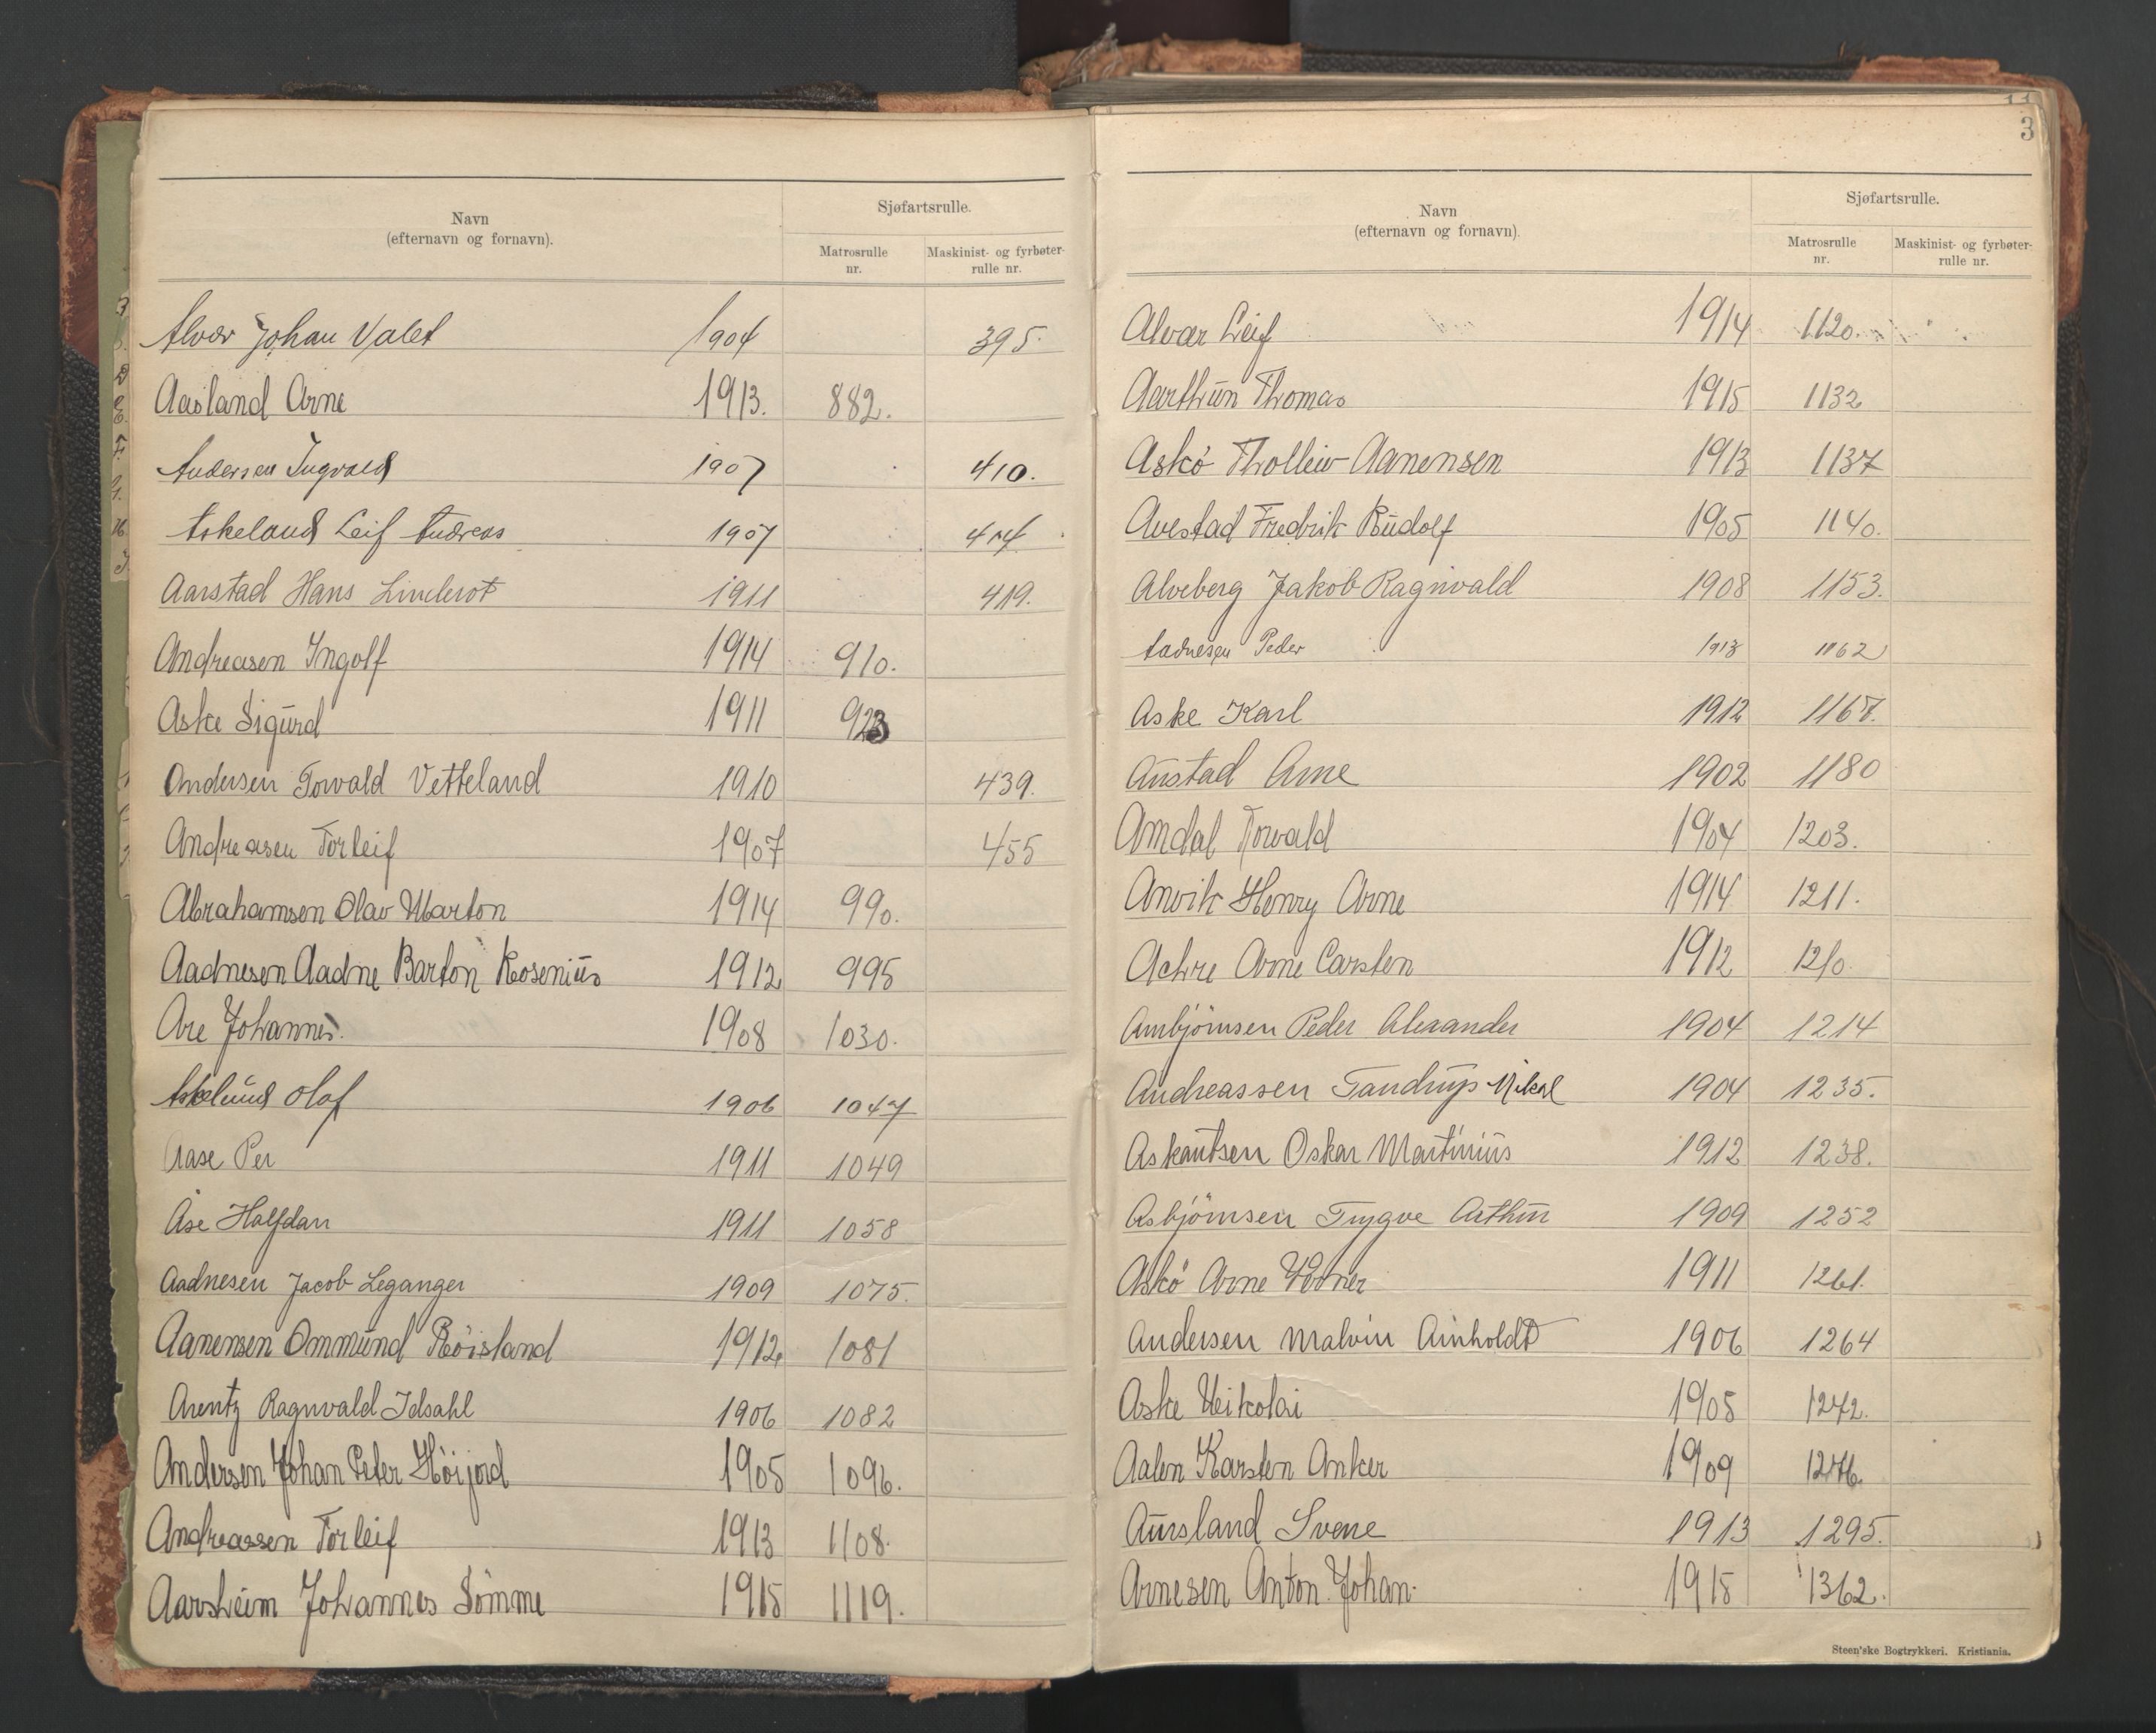 Navn
(efternavn og fornavn).
Sjøfartsrulle.
Matrosrulle nr.
Maskinist- og fyrbøter-rulle nr.
Alvær Johan Valet 1904 395.
Aasland Arne 1913. 882.
Andersen Ingvald 1907 410.
Askeland Leif Andreas 1907 414
Aarstad Hans Linderot 1911 419.
Andreasen Ingolf 1914 910.
Aske Sigurd 1911 923
Andersen Torvald Vetteland 1910 439.
Andreasen Torleif 1907 455
Abrahamsen Olav Marton 1914 990.
Aadnesen Aadne Barton Rosenius 1912 995
Are Johannes. 1908 1030.
Askelund Olaf 1906 1047
Aase Per 1911 1049
Åse Halfdan 1911 1058
Aadnesen Jacob Leganger 1909 1075.
Aanensen Ommund Röisland 1912 1081
Arentz Ragnvald Idsahl 1906 1082
Andersen Johan Peter Höijord 1905 1096.
Andreassen Torleif 1913 1108.
Aarsheim Johannes Sömme 1915 1119.
3
Navn
(efternavn og fornavn).
Sjøfartsrulle.
Matrosrulle nr.
Maskinist- og fyrbøter-rulle nr.
Alvær Leif 1914 1120.
Aarthun Thomas 1915 1132
Askö Tholleiv Aanensen 1913 1137
Avestad Fredrik Rudolf 1905 1140.
Alveberg Jakob Ragnvald 1908 1153.
Aadnesen Peder 1913 1162
Aske Karl 1912 1167.
Austad Arne 1902 1180
Amdal Torvald 1904 1203.
Anvik Henry Arne 1914 1211.
Achre Arne Carsten 1912 1210.
Arnbjörnsen Peder Alexander 1904 1214
Andreassen Tandrup Mikal 1904 1235.
Askautsen Oskar Martinius 1912 1238.
Asbjörnsen Trygve Arthur 1909 1252
Askö Arne Verner 1911 1261.
Andersen Malvin Ainholdt 1906 1264
Aske Neikolai 1905 1272.
Aalen Karsten Anker 1909 1276.
Aursland Svene 1913 1295.
Arnesen Anton Johan. 1915 1362.
Steen'ske Bogtrykkeri. Kristiania.